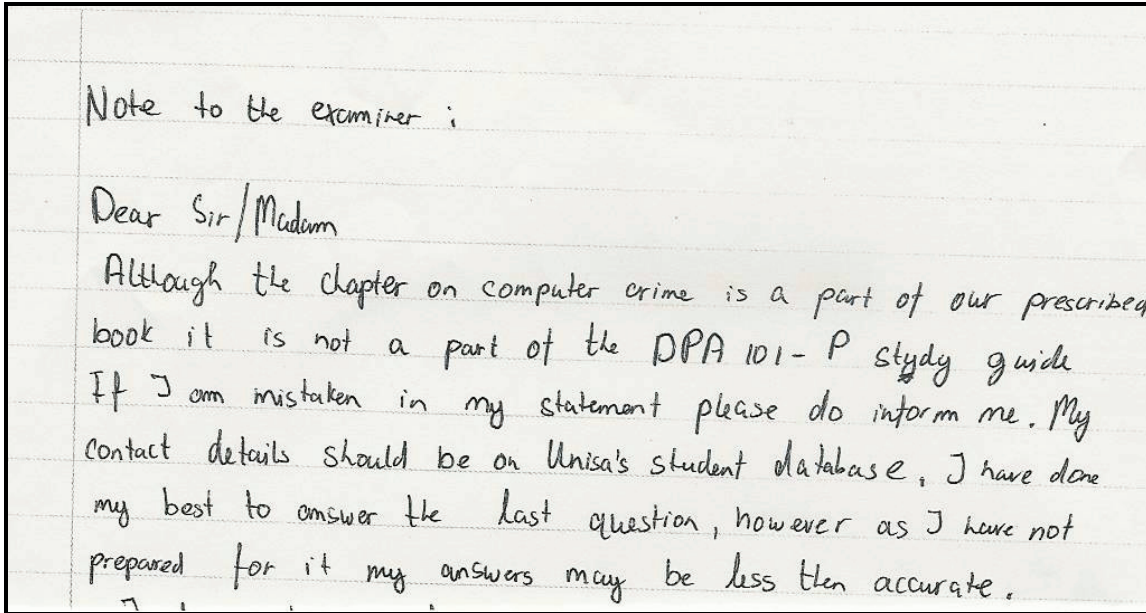 Note to the examiner :
Dear Sir/Madam
Although the chapter on computer crime is a part of our prescribed
book it is not a part of the DPA 101 - P stydy guide
If I am mistaken in my statement please do inform me. My
contact details should be on Unisa's student database, I have done
my best to answer the last question, however as I have not
prepared for it my answers may be less then accurate.